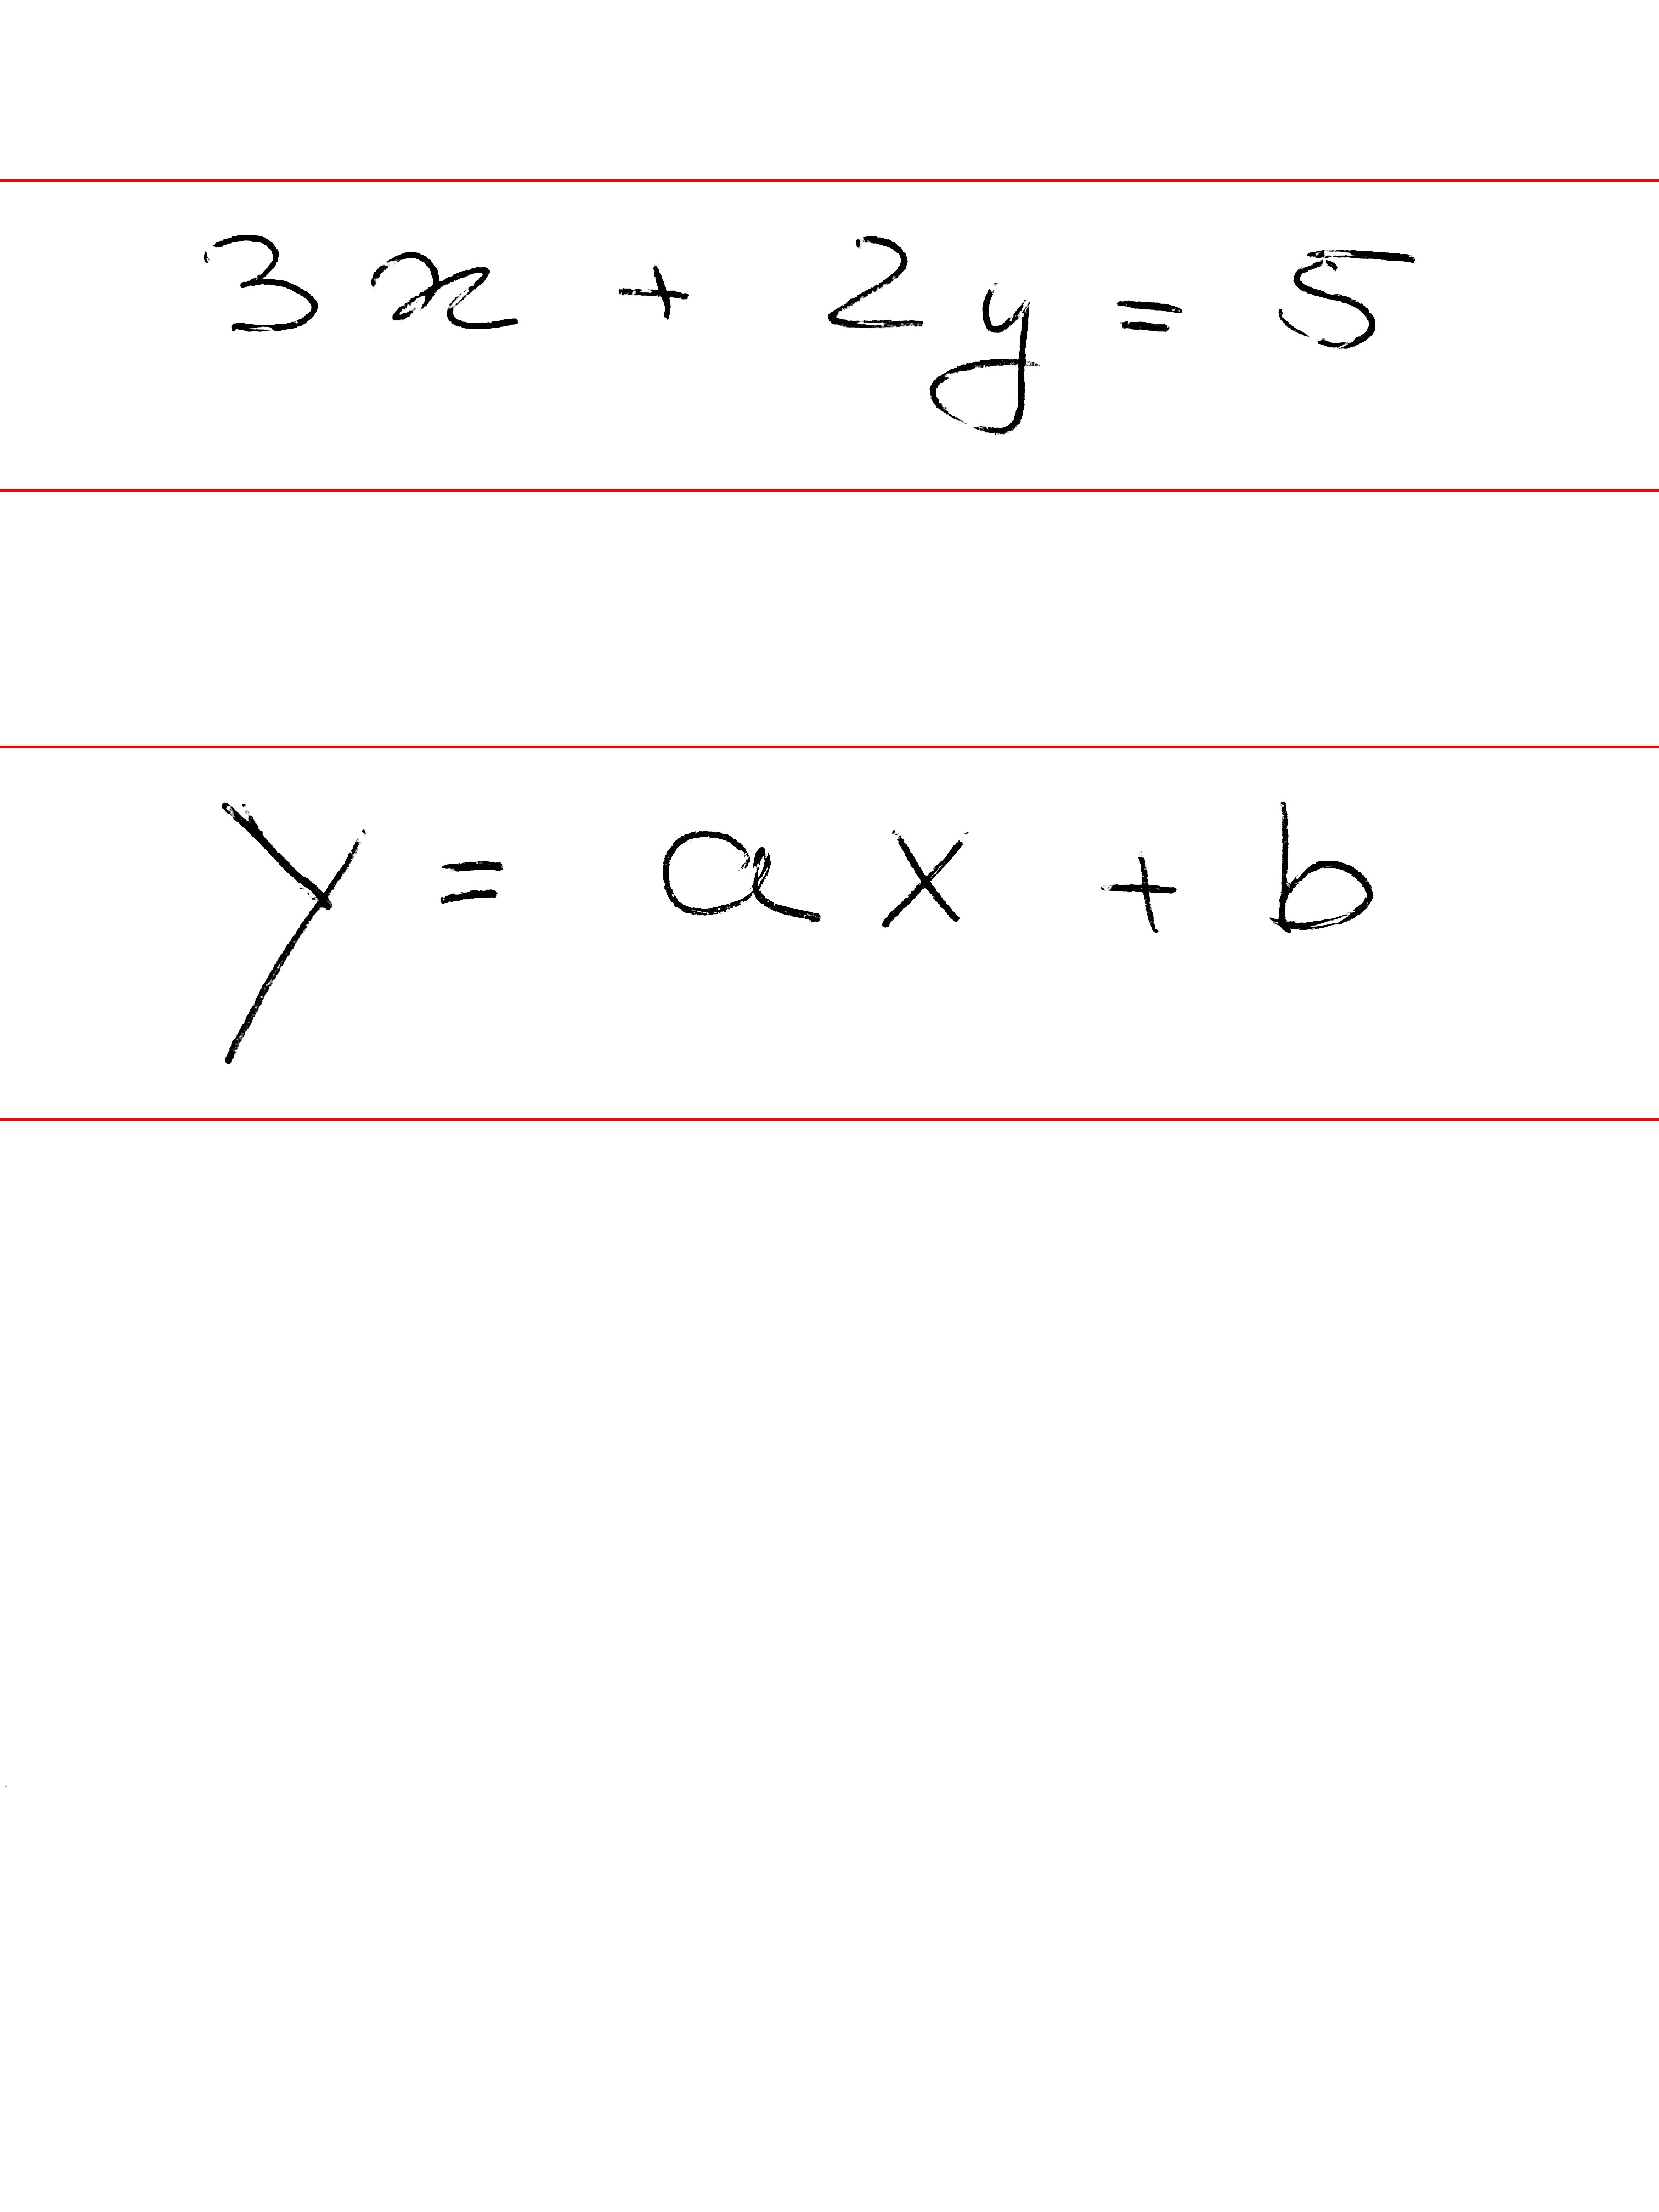 3x + 2y = 5
y = ax + b